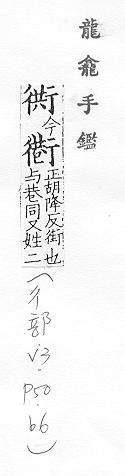 龍龕手鑑
衖今衖
正胡降反街也
与巷同又姓二
(彳部.v3.p50.b6)